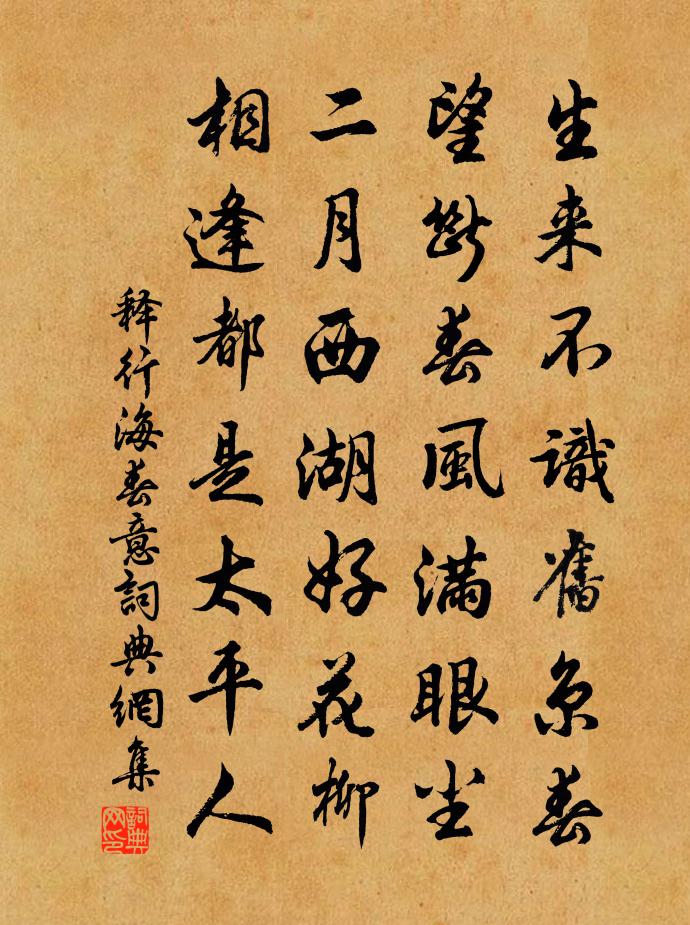 生来不識舊京春
望斷春風滿眼尘
二月西湖好花柳
相逢都是太平人
释行海春意詞典網集
詞典网印